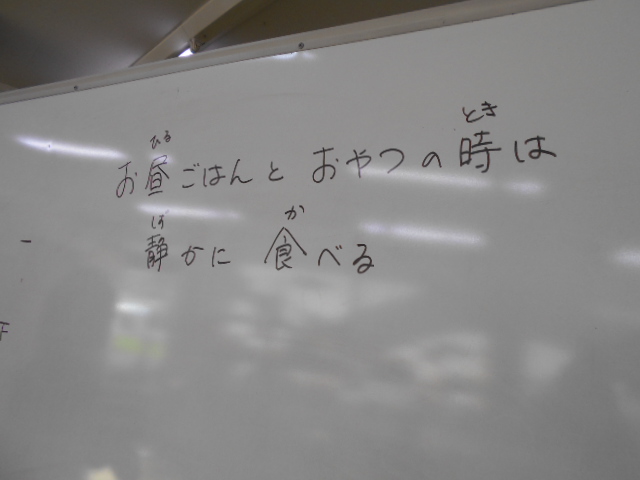 ひる とき
お昼ごはんと おやつの時は
しず か
静かに 食べる